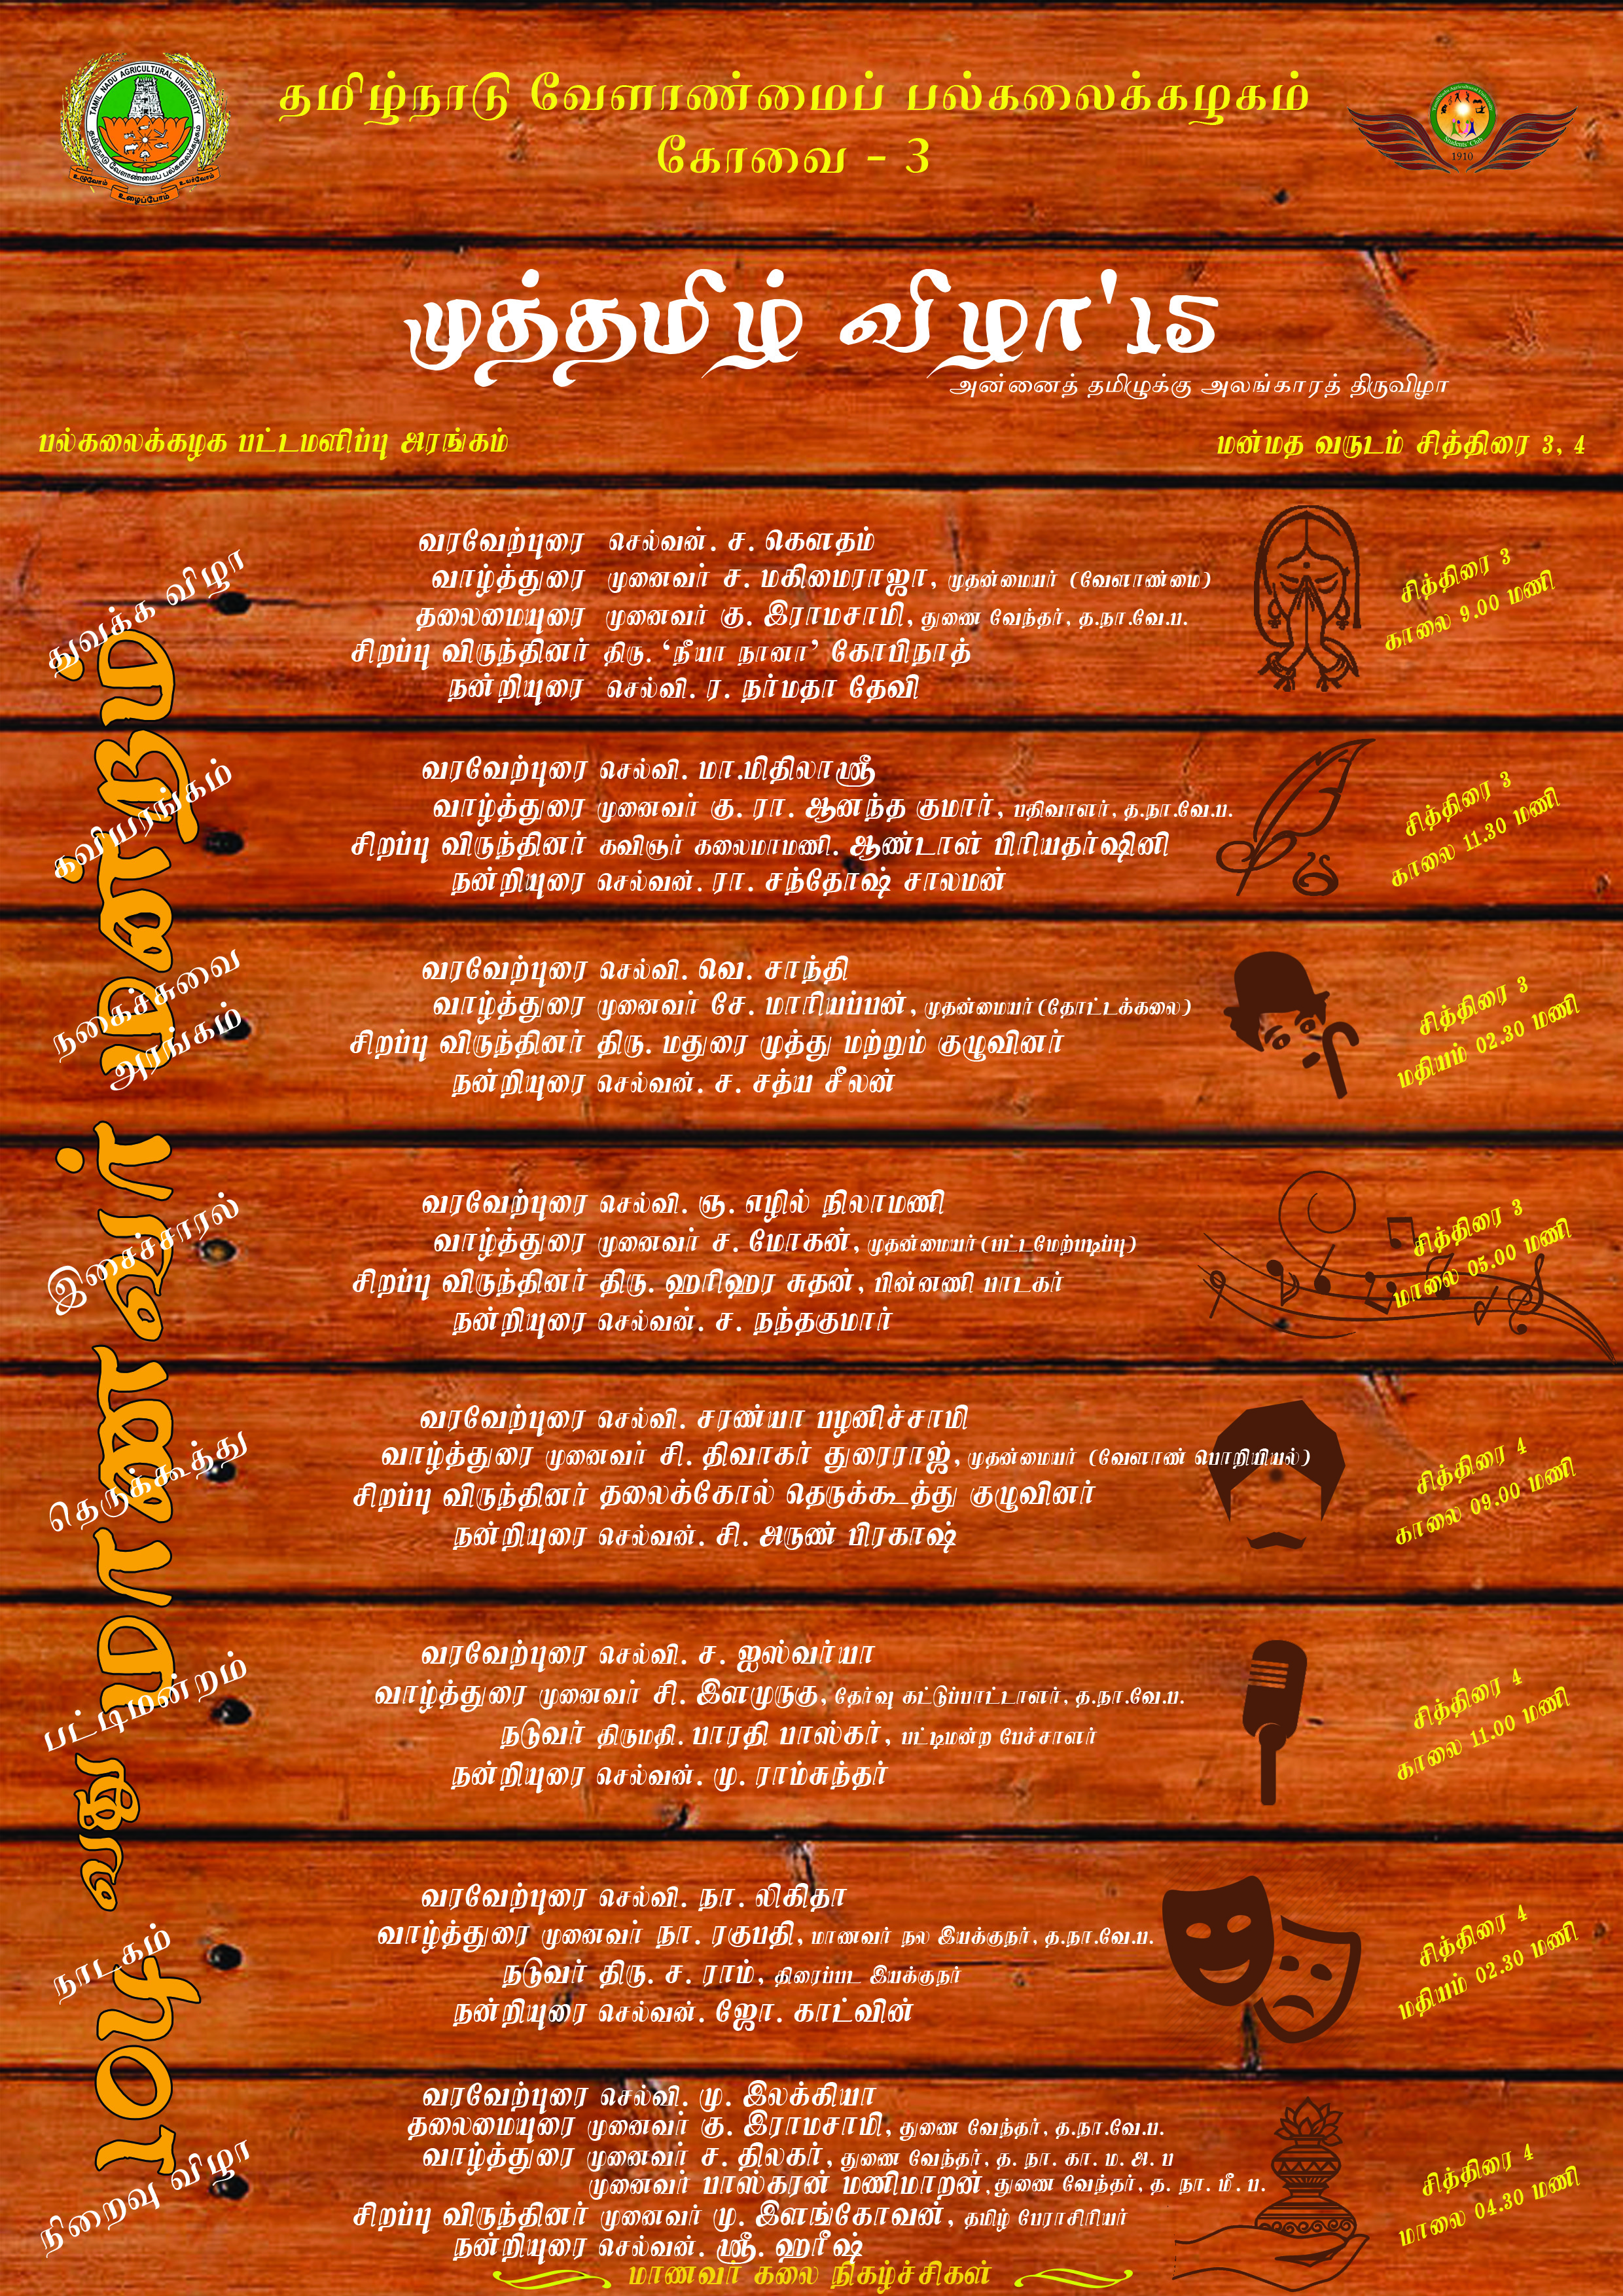 தமிழ்நாடு வேளாண்மைப் பல்கலைக்கழகம்
கோவை - 3
TAMIL NADU AGRICULTURAL UNIVERSITY
தமிழ்நாடு வேளாண்மைப் பல்கலைக்கழகம்
உழுவோம் உழைப்போம் உயர்வோம்
Tamilnadu Agricultural University
Students' Club
1910
முத்தமிழ் விழா'15
அன்னைத் தமிழுக்கு அலங்காரத் திருவிழா
பல்கலைக்கழக பட்டமளிப்பு அரங்கம்
மன்மத வருடம் சித்திரை 3, 4
104 வது மாணவர் மன்றம்
துவக்க விழா
வரவேற்புரை செல்வன். ச. கௌதம்
வாழ்த்துரை முனைவர் ச. மகிமைராஜா, முதன்மையர் (வேளாண்மை)
தலைமையுரை முனைவர் கு. இராமசாமி, துணை வேந்தர், த.நா.வே.ப.
சிறப்பு விருந்தினர் திரு. ‘நீயா நானா’ கோபிநாத்
நன்றியுரை செல்வி. ர. நர்மதா தேவி
சித்திரை 3
காலை 9.00 மணி
கவியரங்கம்
வரவேற்புரை செல்வி. மா.மிதிலாஸ்ரீ
வாழ்த்துரை முனைவர் கு. ரா. ஆனந்த குமார், பதிவாளர், த.நா.வே.ப.
சிறப்பு விருந்தினர் கவிஞர் கலைமாமணி. ஆண்டாள் பிரியதர்ஷினி
நன்றியுரை செல்வன். ரா. சந்தோஷ் சாலமன்
சித்திரை 3
காலை 11.30 மணி
நகைச்சுவை
அரங்கம்
வரவேற்புரை செல்வி. வெ. சாந்தி
வாழ்த்துரை முனைவர் சே. மாரியப்பன், முதன்மையர்(தோட்டக்கலை)
சிறப்பு விருந்தினர் திரு. மதுரை முத்து மற்றும் குழுவினர்
நன்றியுரை செல்வன். ச. சத்ய சீலன்
சித்திரை 3
மதியம் 02.30 மணி
இசைச்சாரல்
வரவேற்புரை செல்வி. ஞ. எழில் நிலாமணி
வாழ்த்துரை முனைவர் ச. மோகன், முதன்மையர்(பட்டமேற்படிப்பு)
சிறப்பு விருந்தினர் திரு. ஹரிஹர சுதன், பின்னணி பாடகர்
நன்றியுரை செல்வன். ச. நந்தகுமார்
சித்திரை 3
மாலை 05.00 மணி
தெருக்கூத்து
வரவேற்புரை செல்வி. சரண்யா பழனிச்சாமி
வாழ்த்துரை முனைவர் சி. திவாகர் துரைராஜ், முதன்மையர் (வேளாண் பொறியியல்)
சிறப்பு விருந்தினர் தலைக்கோல் தெருக்கூத்து குழுவினர்
நன்றியுரை செல்வன். சி. அருண் பிரகாஷ்
சித்திரை 4
காலை 09.00 மணி
பட்டிமன்றம்
வரவேற்புரை செல்வி. ச. ஐஸ்வர்யா
வாழ்த்துரை முனைவர் சி. இளமுருகு, தேர்வு கட்டுப்பாட்டாளர், த.நா.வே.ப.
நடுவர் திருமதி. பாரதி பாஸ்கர், பட்டிமன்ற பேச்சாளர்
நன்றியுரை செல்வன். மு. ராம்சுந்தர்
சித்திரை 4
காலை 11.00 மணி
நாடகம்
வரவேற்புரை செல்வி. நா. லிகிதா
வாழ்த்துரை முனைவர் நா. ரகுபதி, மாணவர் நல இயக்குநர், த.நா.வே.ப.
நடுவர் திரு. ச. ராம், திரைப்பட இயக்குநர்
நன்றியுரை செல்வன். ஜோ. காட்வின்
சித்திரை 4
மதியம் 02.30 மணி
நிறைவு விழா
வரவேற்புரை செல்வி. மு. இலக்கியா
தலைமையுரை முனைவர் கு. இராமசாமி, துணை வேந்தர், த.நா.வே.ப.
வாழ்த்துரை முனைவர் ச. திலகர், துணை வேந்தர், த. நா. கா. ம. அ. ப
முனைவர் பாஸ்கரன் மணிமாறன், துணை வேந்தர், த. நா. மீ. ப.
சிறப்பு விருந்தினர் முனைவர் மு. இளங்கோவன், தமிழ் பேராசிரியர்
நன்றியுரை செல்வன். ஸ்ரீ. ஹரீஷ்
சித்திரை 4
மாலை 04.30 மணி
மாணவர் கலை நிகழ்ச்சிகள்